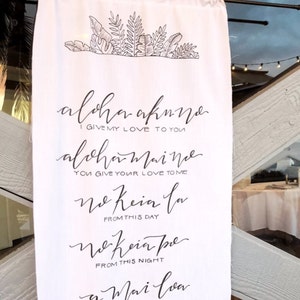 aloha aku no
I GIVE MY LOVE TO YOU
aloha mai no
YOU GIVE YOUR LOVE TO ME
no keia la
FROM THIS DAY
no keia po
FROM THIS NIGHT
a mau loa